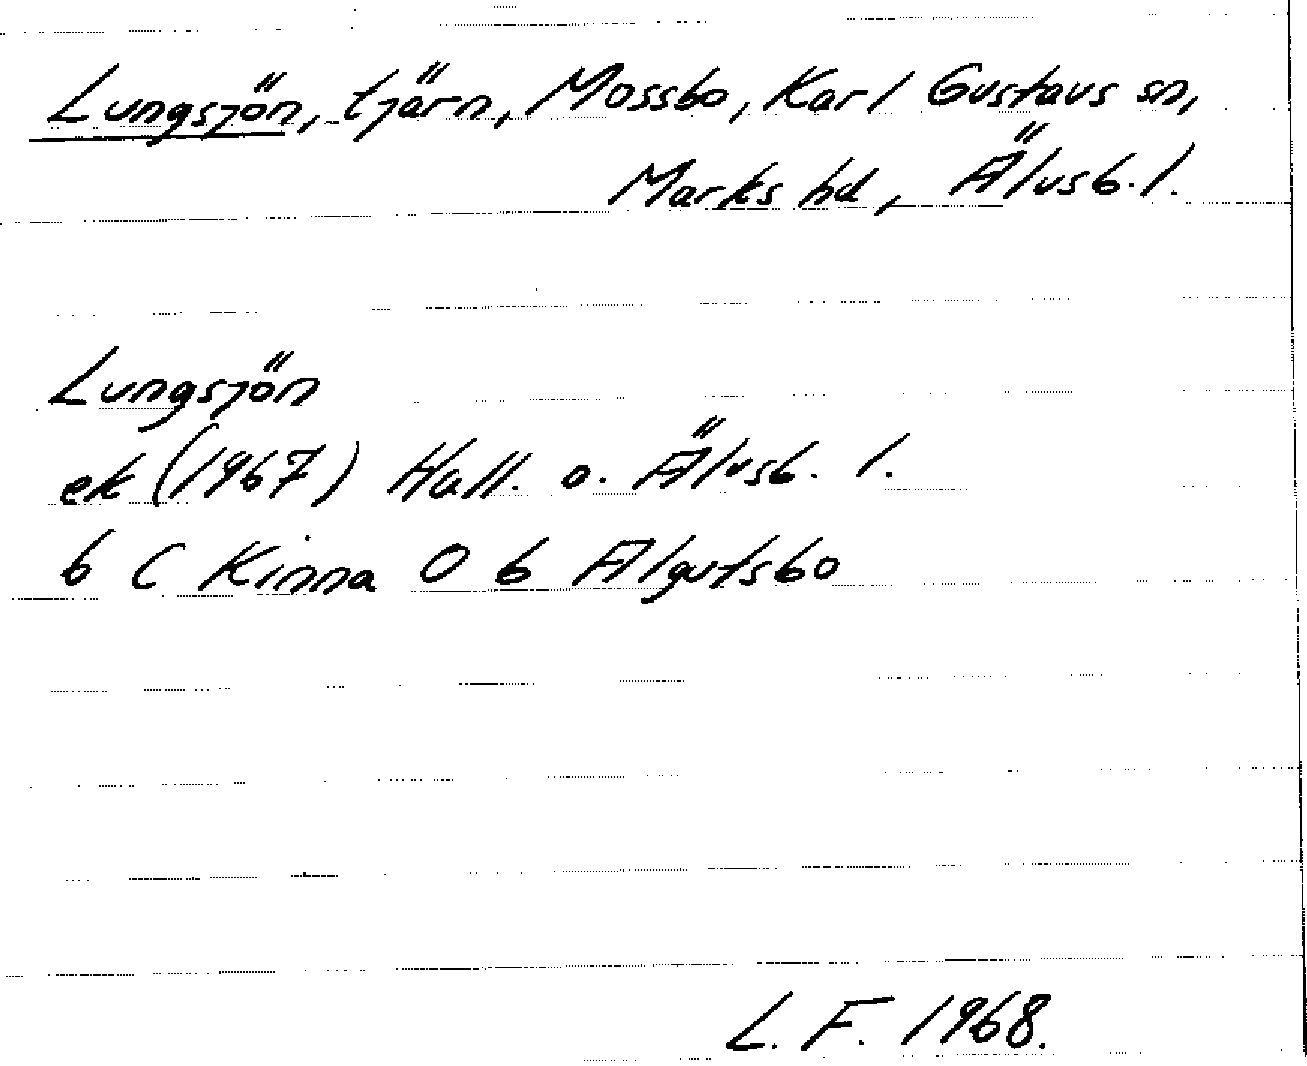 Lungsjön, tjärn, Mossbo, Karl Gustavs sn,
Marks hd, Älvsb. l.
Lungsjön
ek (1967) Hall. o. Älvsb. l.
6 C Kinna O 6 Algutsbo
L. F. 1968.